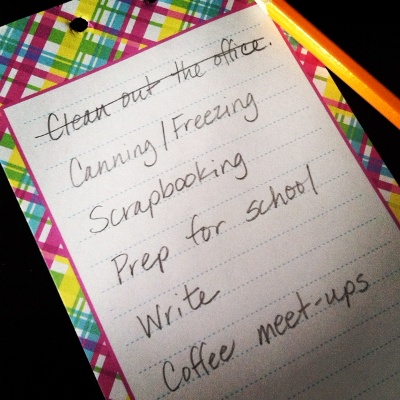 Clean out the office.
Canning/Freezing
Scrapbooking
Prep for school
Write
Coffee meet-ups